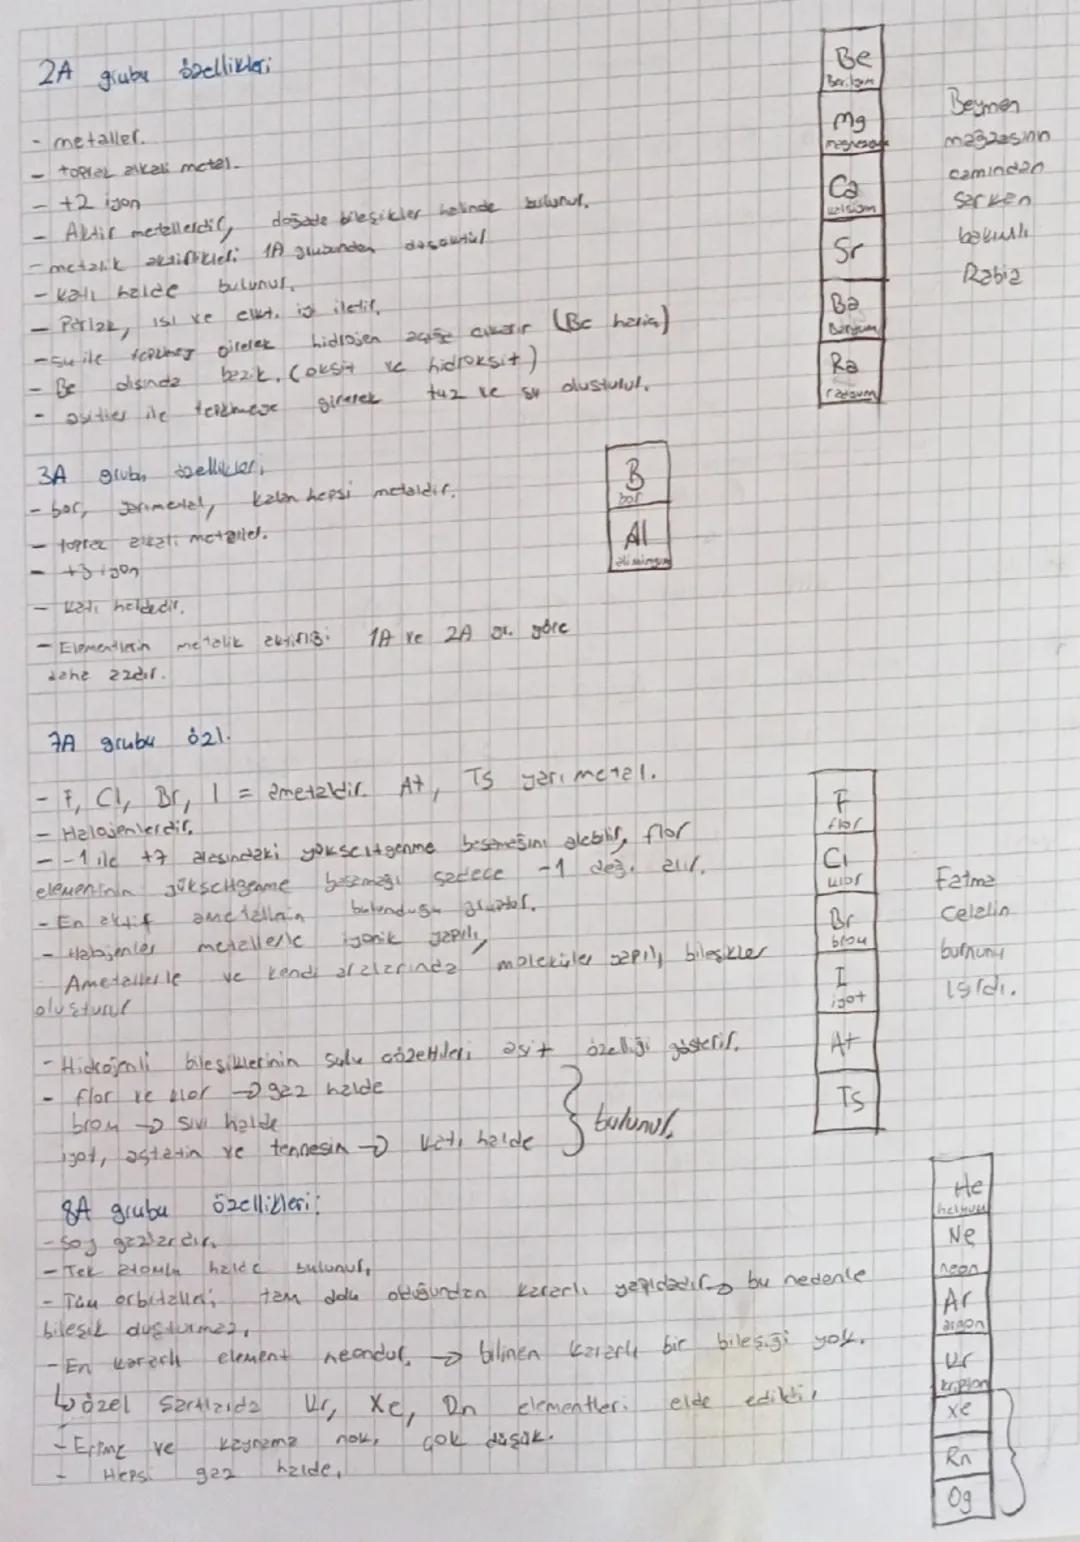 2A grubu özellikleri
- metaller.
- toprak alkali metal.
- +2 iyon
- Aktif metallerdir, doğada bileşikler halinde bulunur.
- metalik aktiflikleri 1A grubundan düşüktür
- katı halde bulunur.
- Parlak, ısı ve elkt. iyi iletir.
- su ile tepkimeye girerek hidrojen açığa çıkarır (Be hariç)
- Be dışında bazik. (oksit ve hidroksit)
- asitler ile tepkimeye girerek tuz ve su oluşturur.
Be
Berilyum
Mg
magnezyum
Ca
kalsiyum
Sr
Ba
Baryum
Ra
radyum
Beymen
mağazasının
camından
sarkan
bakışlı
Rabia
3A grubu özellikleri
- bor, yarımetal, kalan hepsi metaldir.
- toprak alkali metaller.
- +3 iyon
- katı haldedir.
- Elementlerin metalik aktifliği 1A ve 2A gr. göre
daha azdır.
B
bor
Al
alüminyum
7A grubu özl.
- F, Cl, Br, I = ametaldir. At, Ts yarı metal.
- Halojenlerdir.
- -1 ile +7 arasındaki yükseltgenme basamağını alabilir, flor
elementinin yükseltgenme basamağı sadece -1 değ. alır.
- En aktif ametallerin bulunduğu gruptur.
- Halojenler metallerle iyonik yapılı,
Ametallerle ve kendi aralarında moleküler yapılı bileşikler
oluşturur
- Hidrojenli bileşiklerinin sulu çözeltileri asit özelliği gösterir.
- flor ve klor → gaz halde
brom → sıvı halde
iyot, astatin ve tennesin → katı halde } bulunur.
F
flor
Cl
klor
Br
brom
I
iyot
At
Ts
Fatma
Celalin
burnunu
ısırdı.
8A grubu özellikleri:
- Soy gazlardır.
- Tek atomlu halde bulunur.
- Tüm orbitalleri tam dolu olduğundan kararlı yapıdadır → bu nedenle
bileşik oluşturmaz.
- En kararlı element neondur. → bilinen kararlı bir bileşiği yok.
↳ özel şartlarda Kr, Xe, Rn elementleri elde edildi.
- Erime ve kaynama nok. çok düşük.
- Hepsi gaz halde.
He
helyum
Ne
neon
Ar
argon
Kr
kripton
Xe
Rn
Og